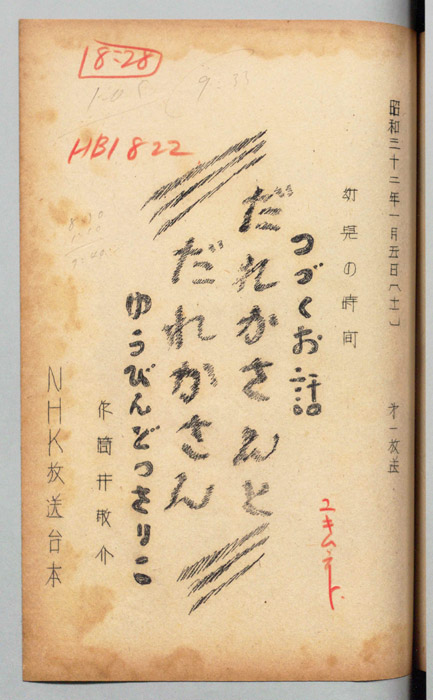 昭和三十二年一月五日(土) 第一放送
幼児の時間
つづくお話
だれかさんと
だれかさん
ゆうびんどっさりこ
作 筒井敬介
NHK放送台本
18:28
HB1822
9.33
1-05